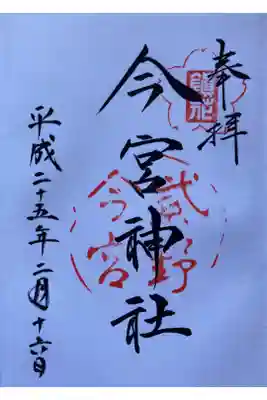 奉拝
今宮神社
平成二十五年二月十六日
今宮